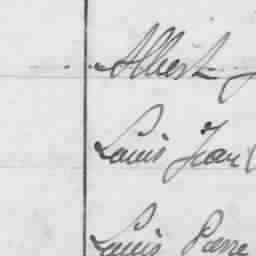 Albert
Louis Jean
Louis Pierre